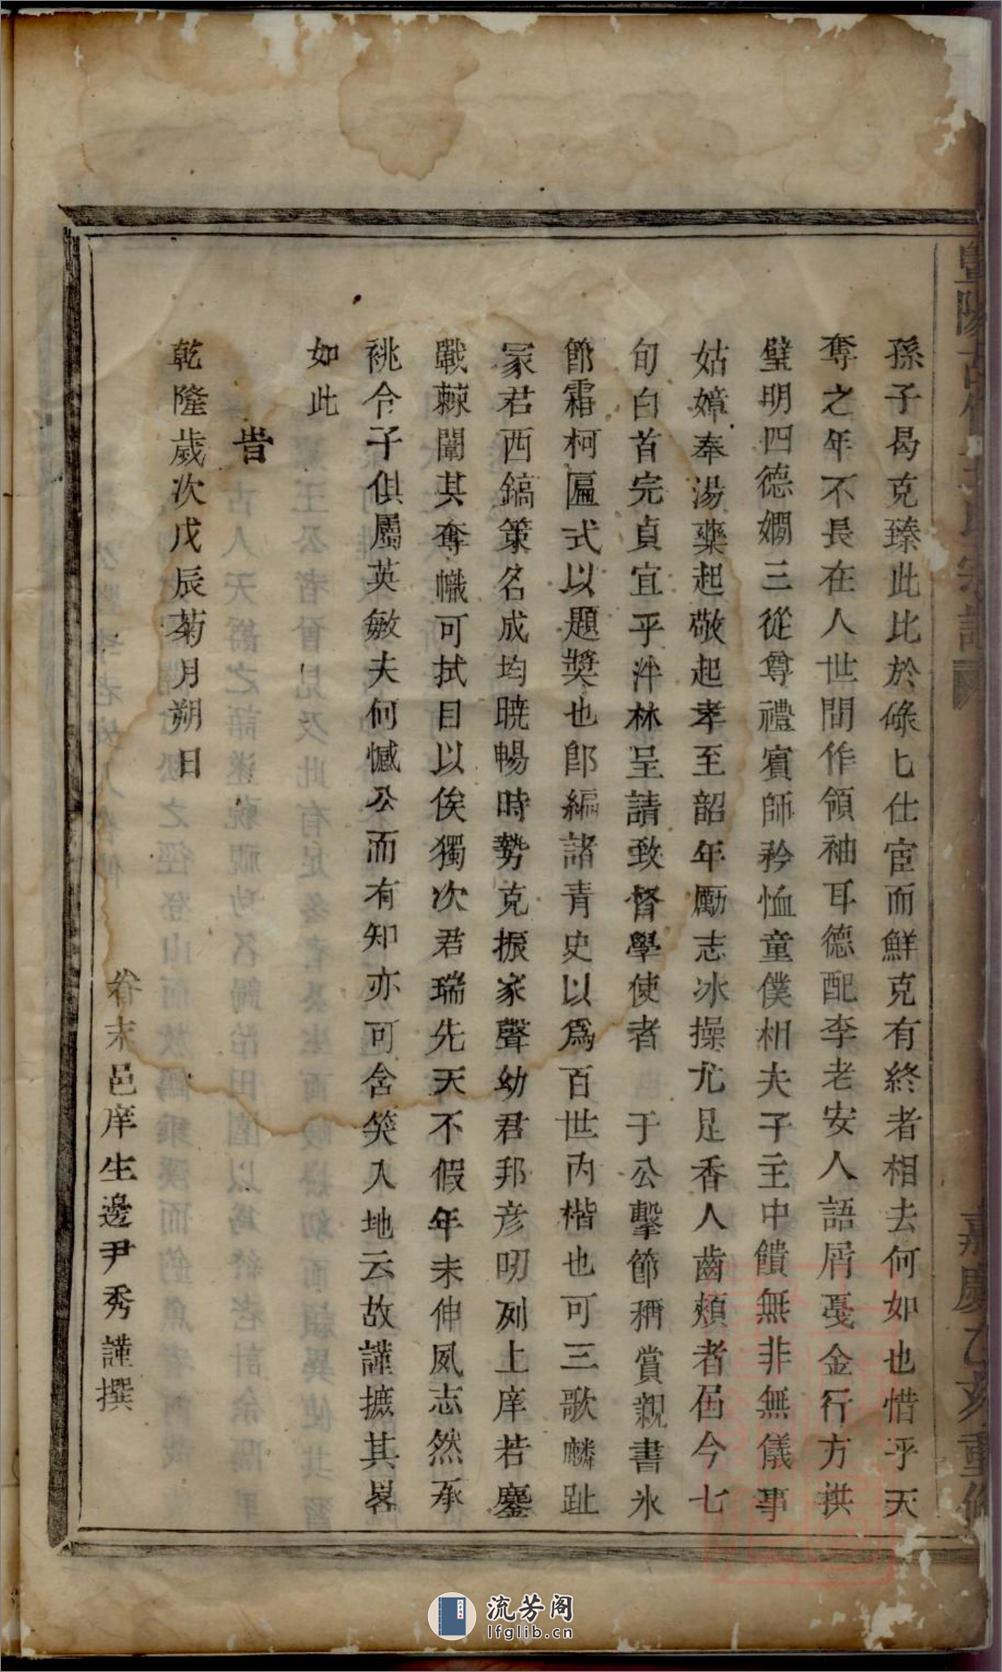 孫子曷克臻此比於碌匕仕宦而鮮克有終者相去何如也惜乎天
奪之年不長在人世間作領袖耳德配李老安人語屑戞金行方拱
璧明四德嫻三從尊禮賓師矜恤童僕相夫子主中饋無非無儀事
姑嫜奉湯藥起敬起孝至韶年勵志冰操尤足香人齒頰者屆今七
旬白首完貞宜乎泮林呈請致督學使者 于公擊節稱賞親書氷
節霜柯匾式以題奬也郎編諸青史以爲百世內楷也可三歌麟趾
冢君西鎬策名成均曉暢時勢克振家聲幼君邦彥叨列上庠若鏖
戰棘闈其奪幟可拭目以俟獨次君瑞先天不假年未伸夙志然承
祧令子俱屬英敏夫何憾公而有知亦可含笑入地云故謹摭其畧
如此
旹
乾隆歲次戊辰菊月朔日
眷末邑庠生邊尹秀謹撰
暨陽
宗譜
嘉慶乙亥重修
流芳阁
lfglib.cn